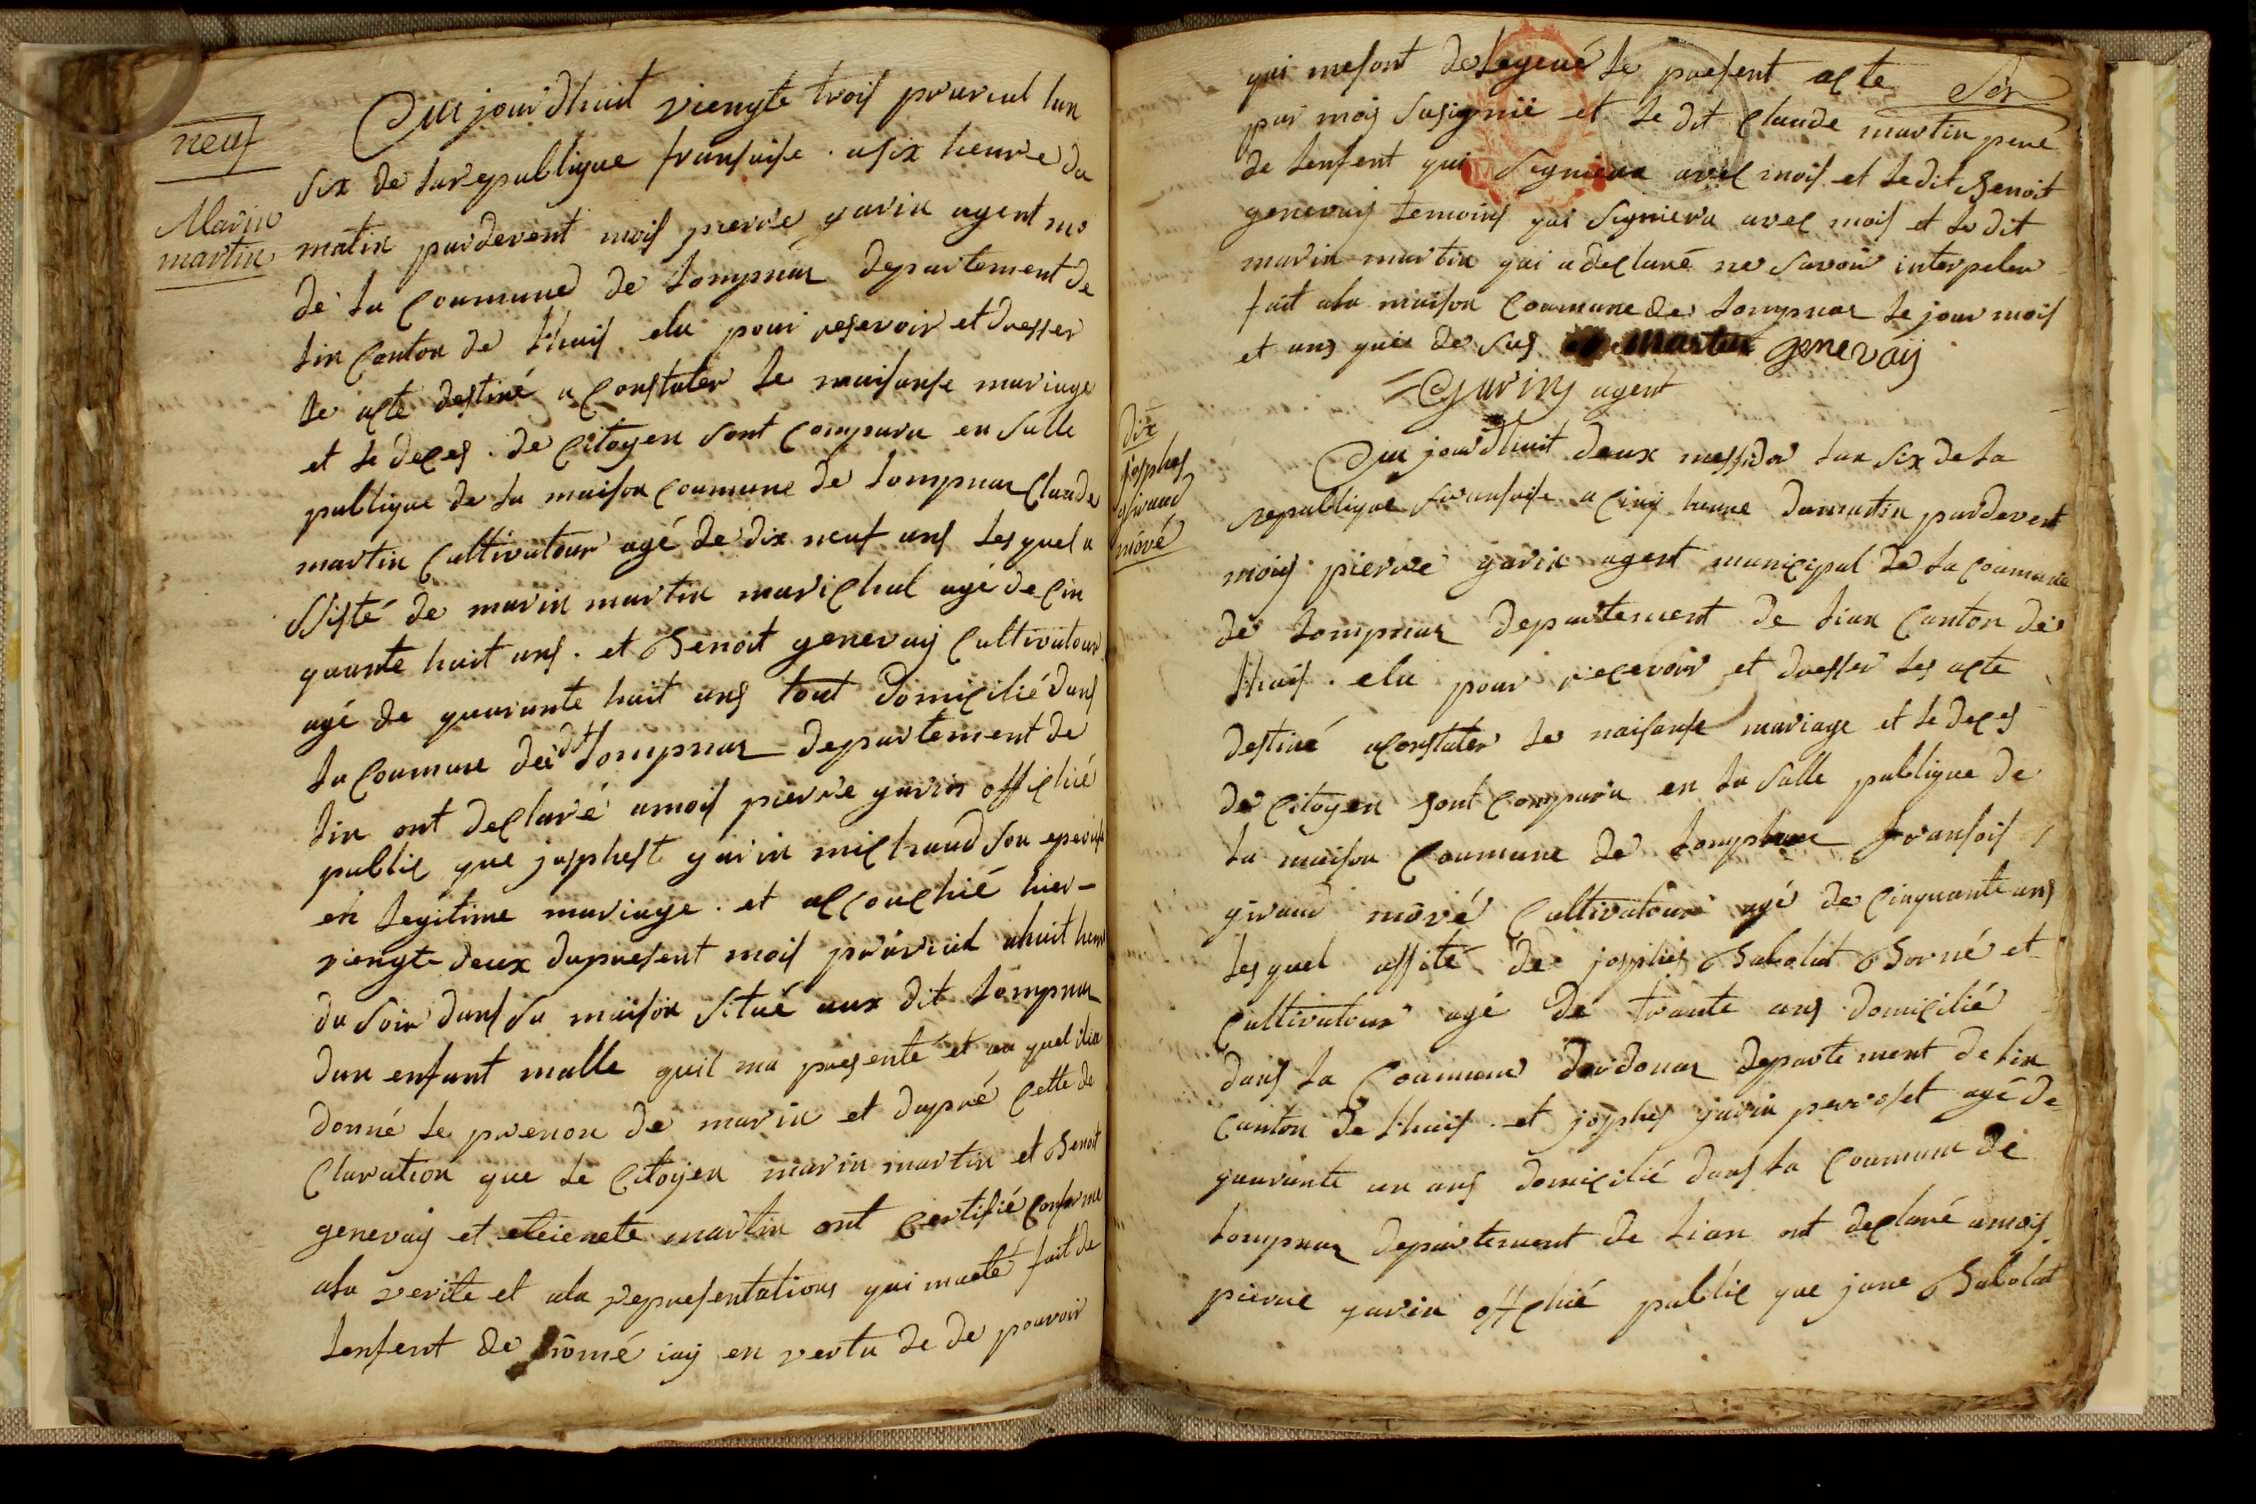 neuf
Marin
martin
Au jourdhuit viengte trois prairial lan
six de la republique fransaise . a six heure du
matin pardevent mois pierre garin agent mu
de la Coumune de Lompnas departement de
lin Canton de Lhuis . elu pour resevoir et dresser
le acte destiné a Constater le naisanse mariage
et le deces . de Citoyen sont Comparu en salle
publique de la maison Coumune de Lompnas Claude
martin Cultivatour agé de dix neuf ans les quel a
ssisté de marin martin marichal agé de cin
quante huit ans . et Benoit genevay Cultivatour
agé de quarante huit ans tout domicilié dans
la Coumune de dit Lompnas departement de
lin ont declaré a mois pierre garin offichié
public que josphest garin michaud son epouse
en legitime mariage . et accouchié hier
viengte deux du present mois prairial a huit heure
du soir dans sa maison situé aux dit Lompnas
dun enfant malle quil ma presenté et au quel il a
donné le prenon de marin et dapré cette de
claration que le Citoyen marin martin et Benoit
genevay et eteienete martin ont certifié conforme
a la verite et a la representations qui ma eté fait de
lenfent de nomé iay en vertu de de pouvoir
qui me sont delegeué le present acte
par mois susignié et le dit Claude martin pere
de lenfent qui signiera avec mois et le dit Benoit
genevay temoins qui signiera avec mois et le dit
marin martin qui a declaré ne savoir interpeler
fait a la maison Coumune de Lompnas le jour mois
et ans que de sus martin genevay
garin agent
dix
josphes
giraud
mövé
Au jourdhuit deux messidor lan six de la
republique fransaise a cinq heure du matin pardevent
mois pierre garin agent municipal de la Coumune
de Lompnas departement de lian Canton de
Lhuis . elu pour recevoir et dresser les acte
destiné a Constater le naisanse mariage et le deces
de Citoyen sont Comparu en la salle publique de
la maison Coumune de Lompnas fransois
giraud mövé Cultivatour agé de Cinquante ans
les quel assité de josphes Babolat Borné et
Cultivatour agé de trante ans domicilié
dans la Coumune dordonas departement de lin
Canton de Lhuis . et josphes garin perroset agé de
quarante un ans domicilié dans la Coumune de
Lompnas departement de lian ont declaré a mois
pierre garin offichié public que jane Babolat